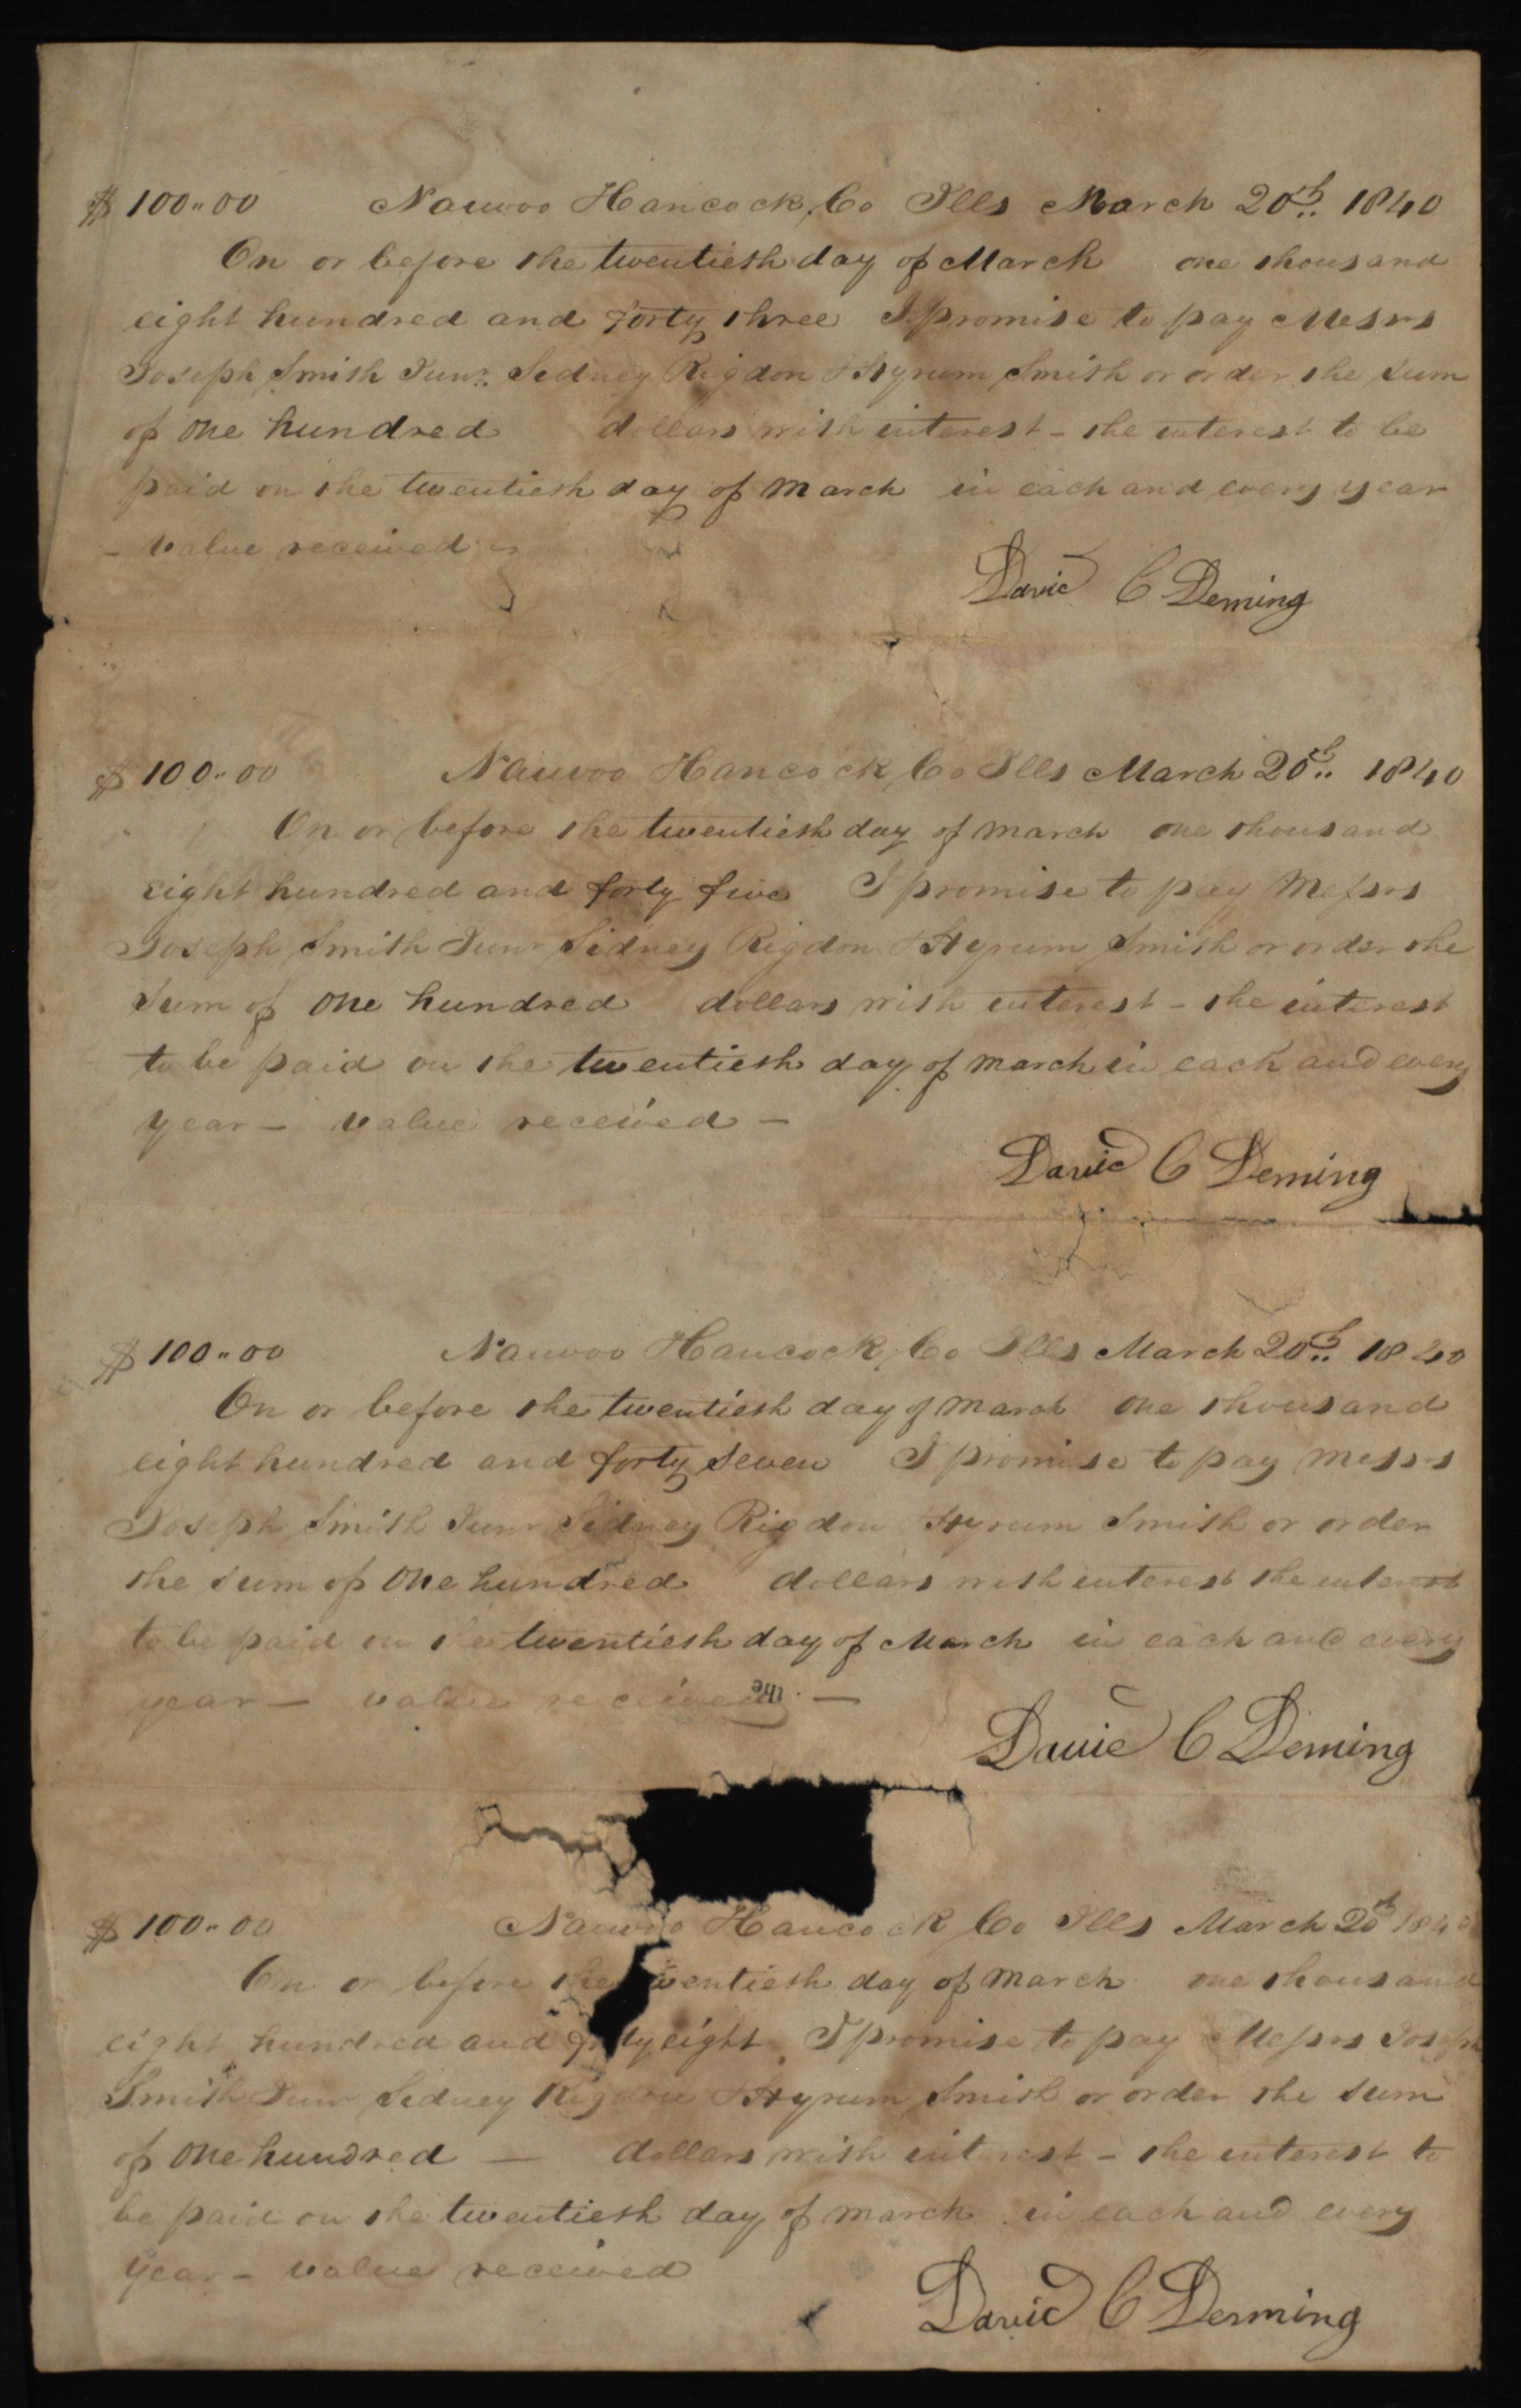 $100.,00 Nauvoo Hancock, Co Ills March 20th.. 1840
On or before the twentieth day of March one thousand
eight hundred and forty three I promise to pay Messrs
Joseph Smith Junr. Sidney Rigdon & Hyrum Smith or order the sum
of one hundred dollars with interest – the interest to be
paid on the twentieth day of March in each and every year
– value received –
David C Deming
$100.,00 Nauvoo Hancock, Co Ills March 20th.. 1840
On or before the twentieth day of March one thousand
eight hundred and forty five I promise to pay Messrs
Joseph Smith Junr Sidney Rigdon & Hyrum Smith or order the
sum of one hundred dollars with interest – the interest
to be paid on the twentieth day of March in each and every
year – value received –
David C Deming
$100.,00 Nauvoo Hancock, Co Ills March 20th.. 1840
On or before the twentieth day of March one thousand
eight hundred and forty seven I promise to pay Messrs
Joseph Smith Junr Sidney Rigdon & Hyrum Smith or order
the sum of one hundred dollars with interest the interest
to be paid on the twentieth day of March in each and every
year – value received –
the
David C Deming
$100.,00 Nauvoo Hancock Co Ills March 20th 1840
On or before the wentieth day of March one thousand
eight hundred and forty eight I promise to pay Messrs Joseph
Smith Junr Sidney Rigdon & Hyrum Smith or order the sum
of one hundred — dollars with interest – the interest to
be paid on the twentieth day of March in each and every
year – value received
David C Deming